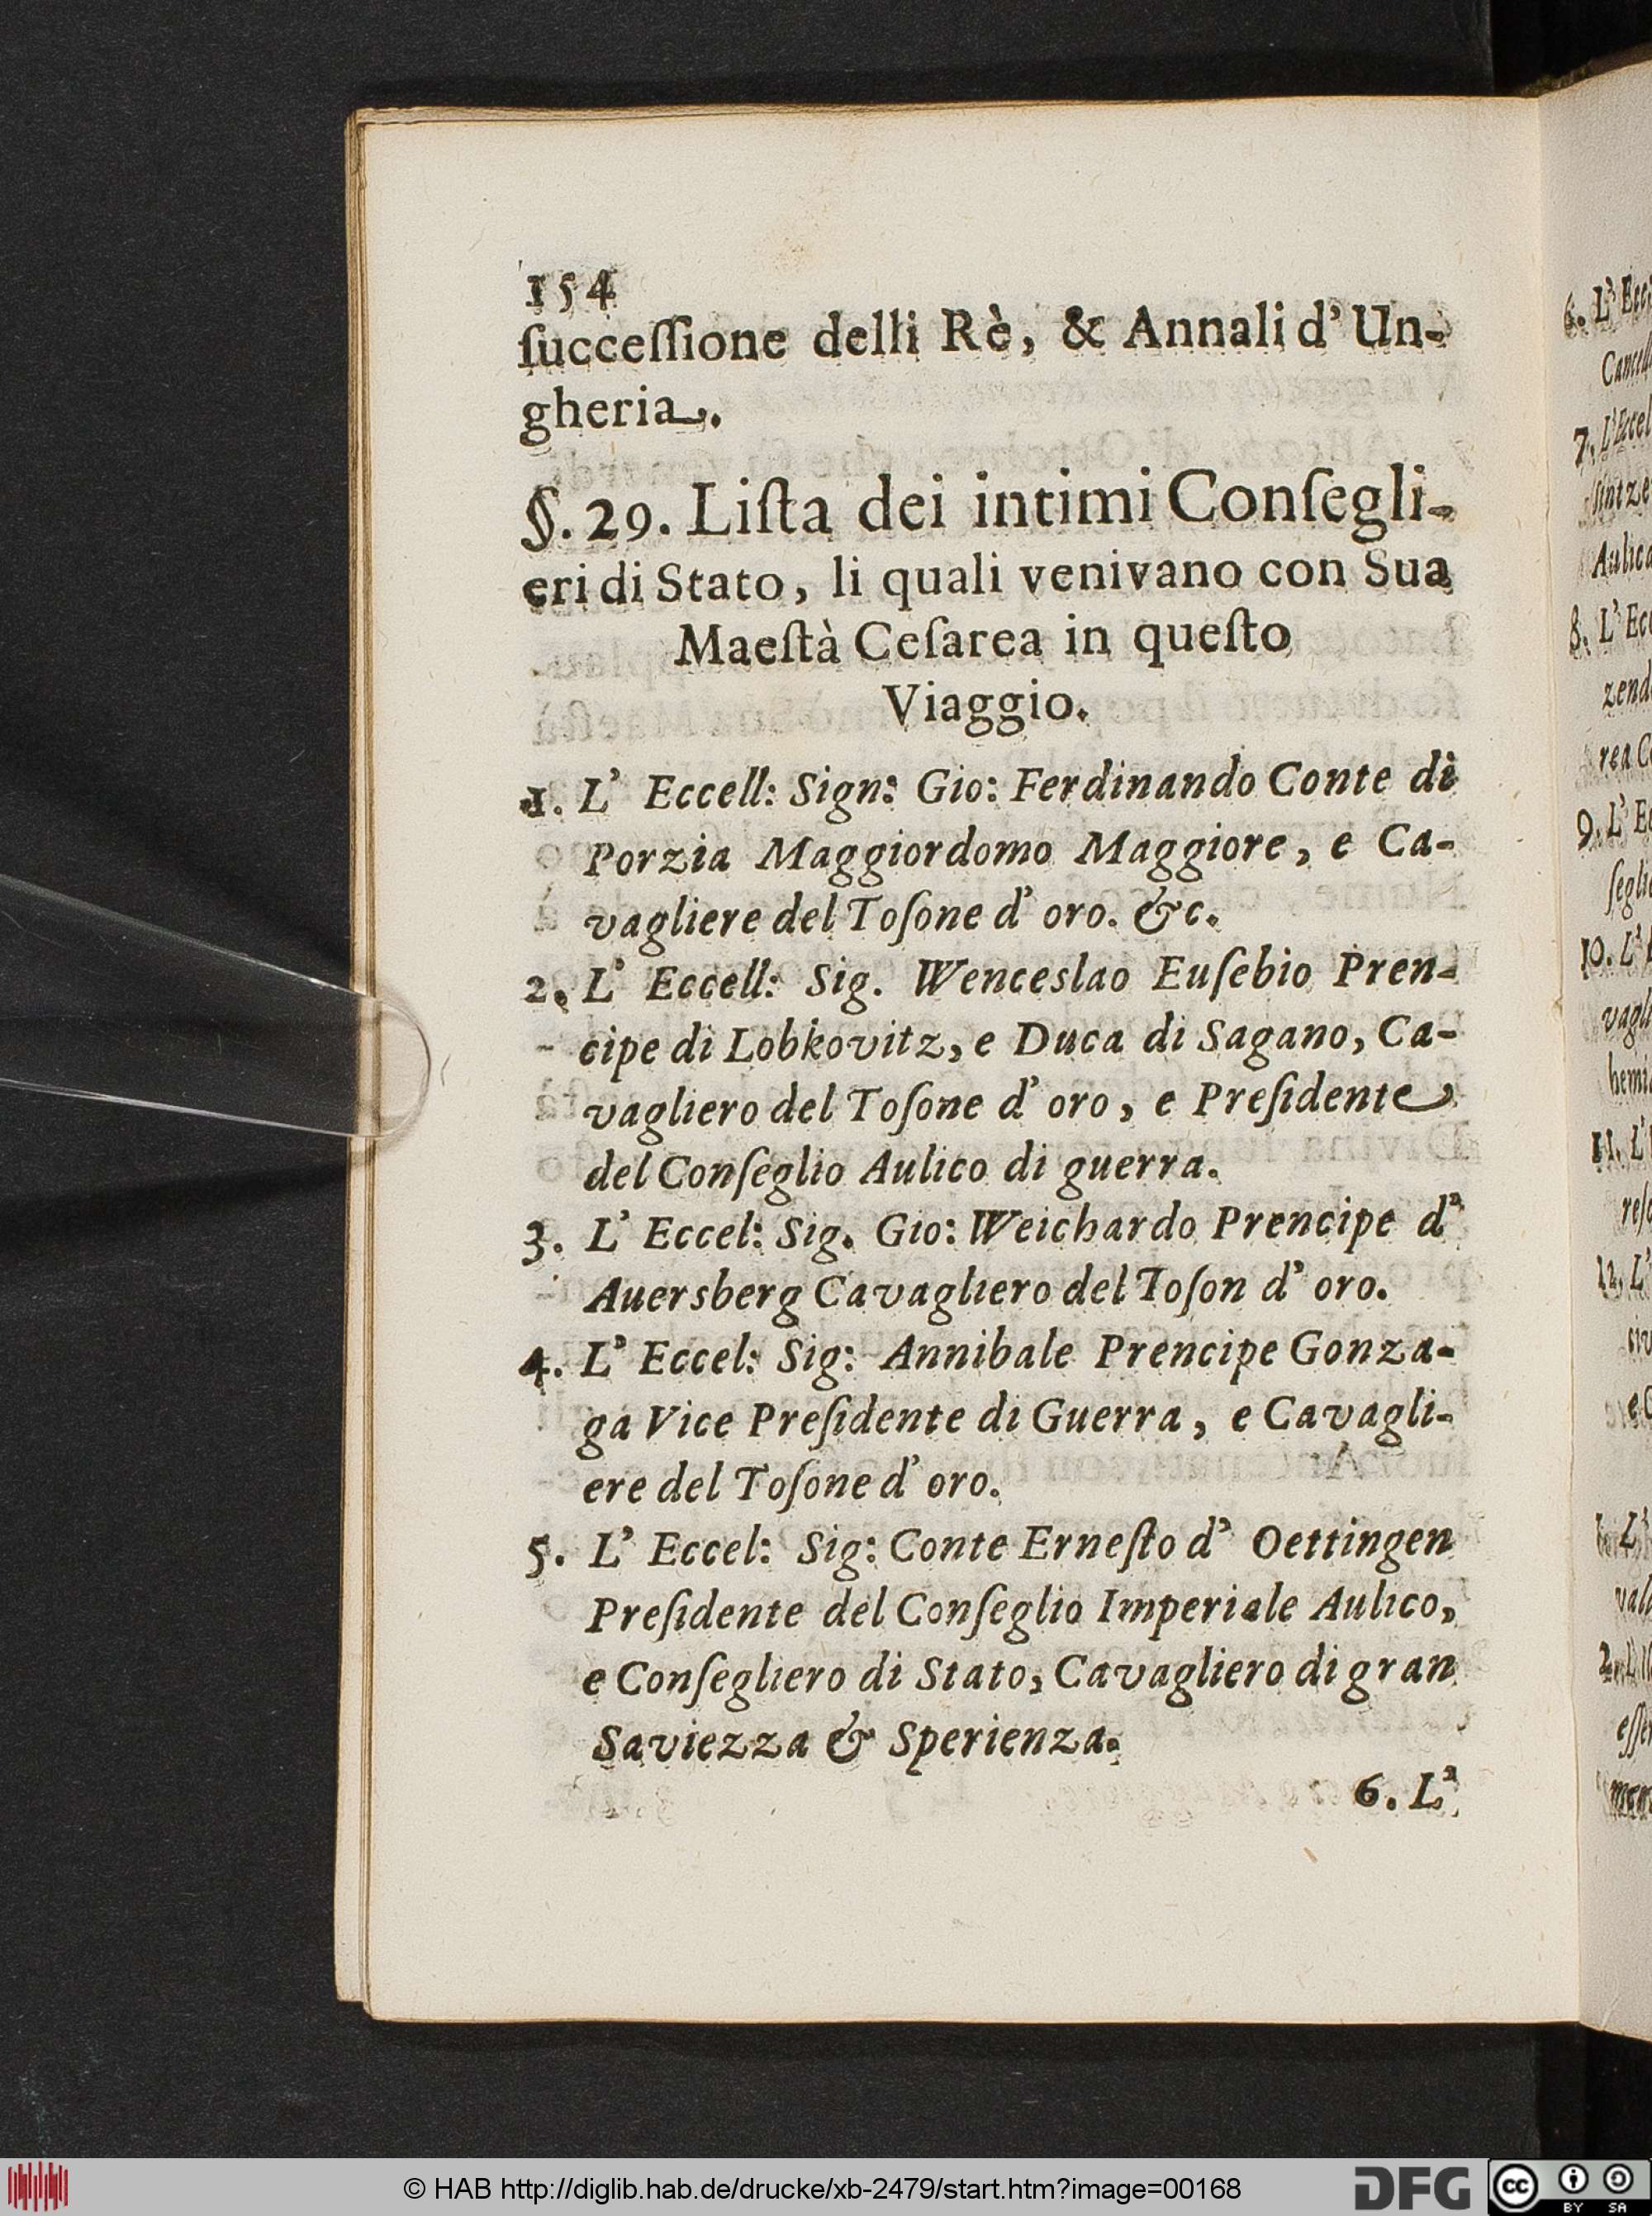 154
ſucceſſione delli Rè, & Annali d' Un-
gheria.
§. 29. Liſta dei intimi Conſegli-
eri di Stato, li quali venivano con Sua
Maeſtà Ceſarea in queſto
Viaggio.
1. L' Eccell: Sign: Gio: Ferdinando Conte di
Porzia Maggiordomo Maggiore, e Ca-
vagliere del Toſone d' oro. &c.
2. L' Eccell: Sig. Wenceslao Euſebio Pren-
cipe di Lobkovitz, e Duca di Sagano, Ca-
vagliero del Toſone d' oro, e Preſidente
del Conſeglio Aulico di guerra.
3. L' Eccel: Sig. Gio: Weichardo Prencipe d'
Auersberg Cavagliero del Toſon d' oro.
4. L' Eccel: Sig: Annibale Prencipe Gonza-
ga Vice Preſidente di Guerra, e Cavagli-
ere del Toſone d' oro.
5. L' Eccel: Sig: Conte Erneſto d' Oettingen
Preſidente del Conſeglio Imperiale Aulico,
e Conſegliero di Stato, Cavagliero di gran
Saviezza & Sperienza.
6. L'
6. L'
7. L'
8. L'
zend
9. L'
10. L'
11. L'
12. L'
© HAB http://diglib.hab.de/drucke/xb-2479/start.htm?image=00168
DFG
cc
BY SA